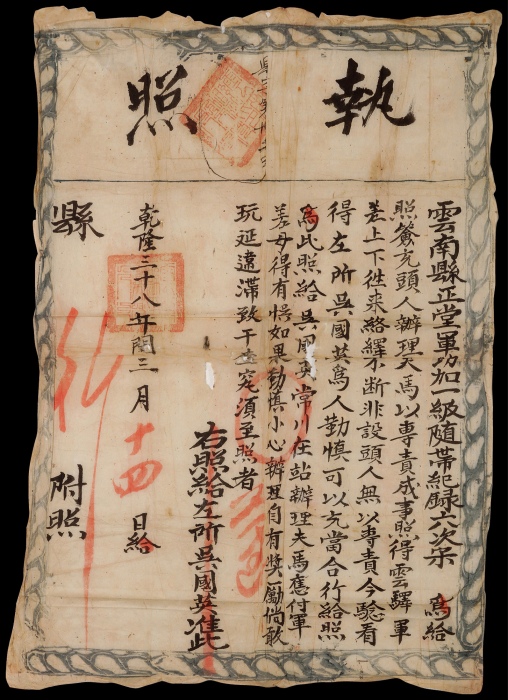 執照
雲南縣正堂軍功加一級隨帶紀錄六次宋 為給
照簽充頭人辦理夫馬以專責成事照得雲驛軍
差上下徃来絡繹不断非設頭人無以專責今驗看
得左所吳國英為人勤慎可以充當合行給照
為此照給吳國英常川在站辦理夫馬應付軍
差毋得有悮如果勤慎小心辦理自有獎勵倘敢
玩延違滯致干查究須至照者
右照給左所吳國英准此
乾隆三十八年閏三月十四日給
縣
附照